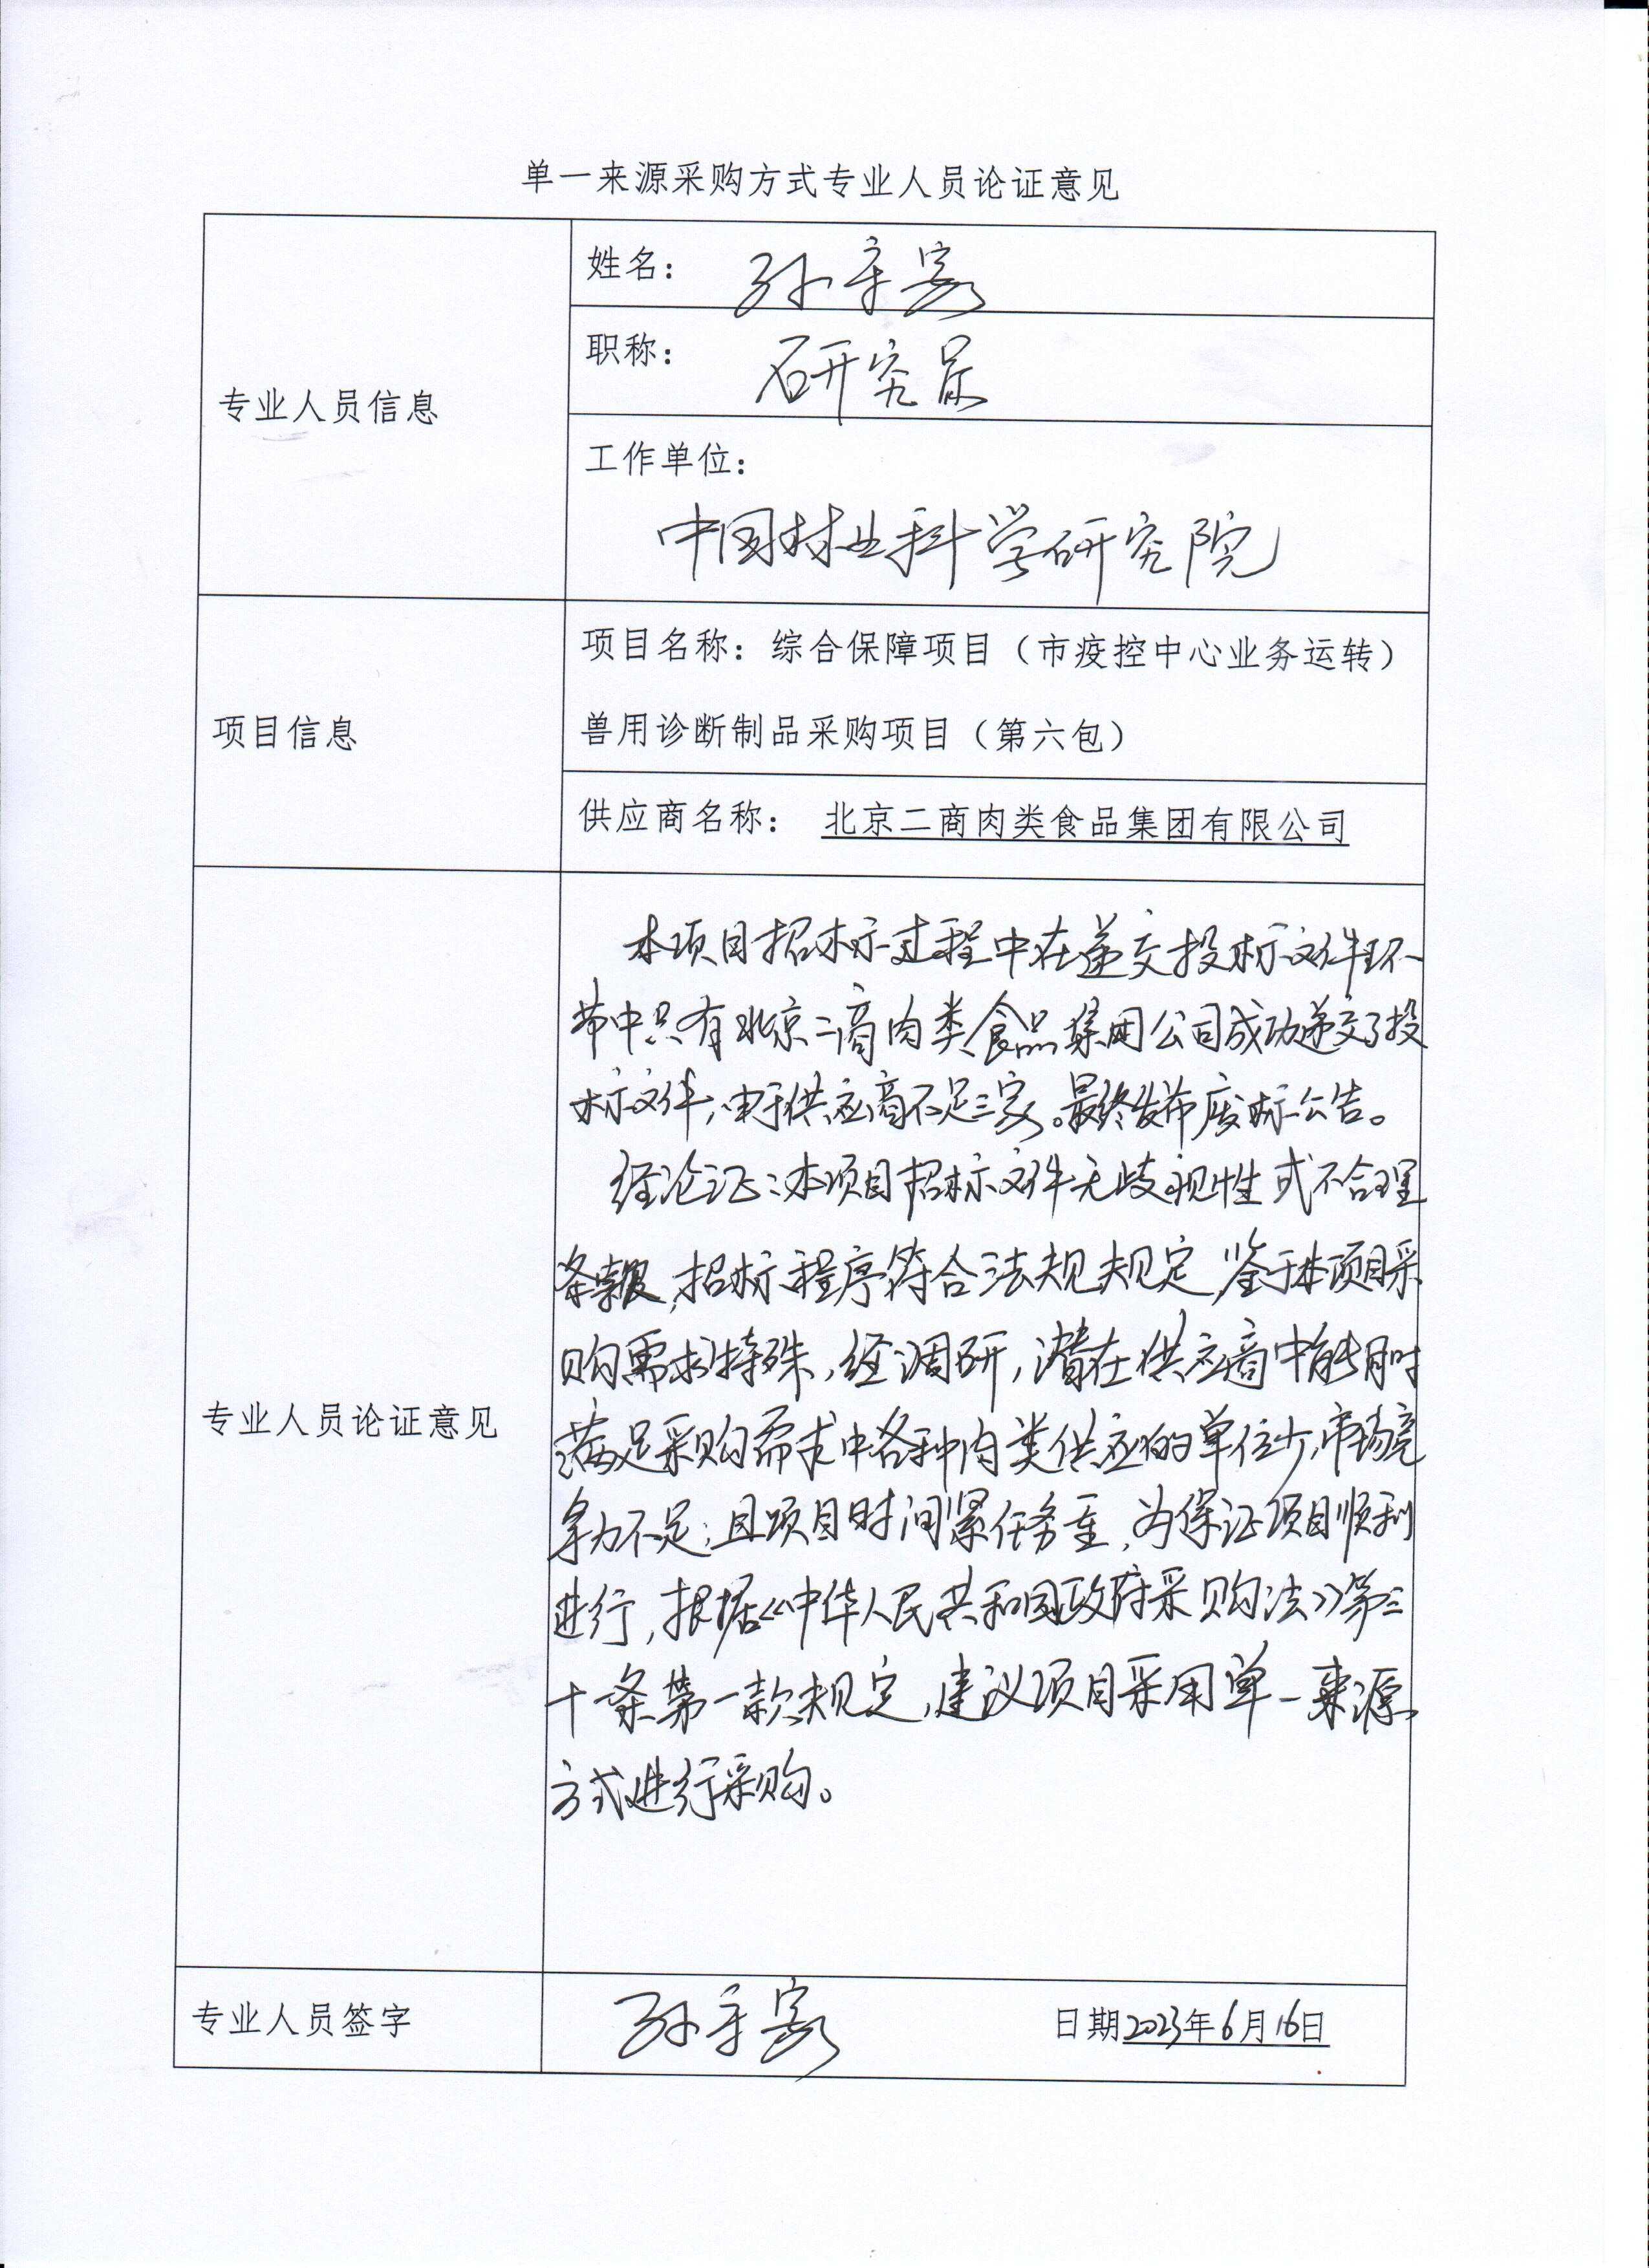 单一来源采购方式专业人员论证意见
专业人员信息
姓名： 孙守家
职称： 研究员
工作单位：
中国林业科学研究院
项目信息
项目名称：综合保障项目（市疫控中心业务运转）
兽用诊断制品采购项目（第六包）
供应商名称： 北京二商肉类食品集团有限公司
专业人员论证意见
本项目招标过程中在递交投标文件环
节中只有北京二商肉类食品集团公司成功递交了投
标文件，由于供应商不足三家。最终发布废标公告。
经论证：本项目招标文件无歧视性或不合理
条款，招标程序符合法规规定，鉴于本项目采
购需求特殊，经调研，潜在供应商中能同时
满足采购需求中各种肉类供应的单位少，市场竞
争力不足；且项目时间紧任务重，为保证项目顺利
进行，根据《中华人民共和国政府采购法》第三
十一条第一款规定，建议项目采用单一来源
方式进行采购。
专业人员签字 孙守家 日期2023年6月16日